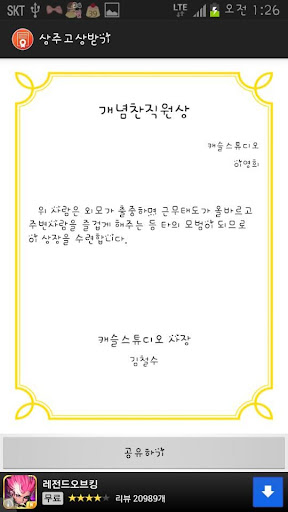 SKT LTE 오전 1:26
상주고상받기
개념찬직원상
캐슬스튜디오
이영희
위 사람은 외모가 출중하며 근무태도가 올바르고
주변사람을 즐겁게 해주는 등 타의 모범이 되므로
이 상장을 수련합니다.
캐슬스튜디오 사장
김철수
공유하기
레전드오브킹
무료 ★★★★ 리뷰 20989개